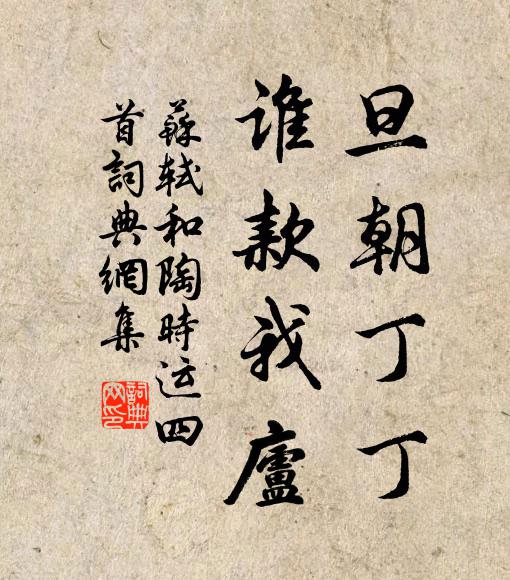 旦朝丁丁
谁款我廬
蘇軾和陶時运四
首詞典網集
詞典
网印